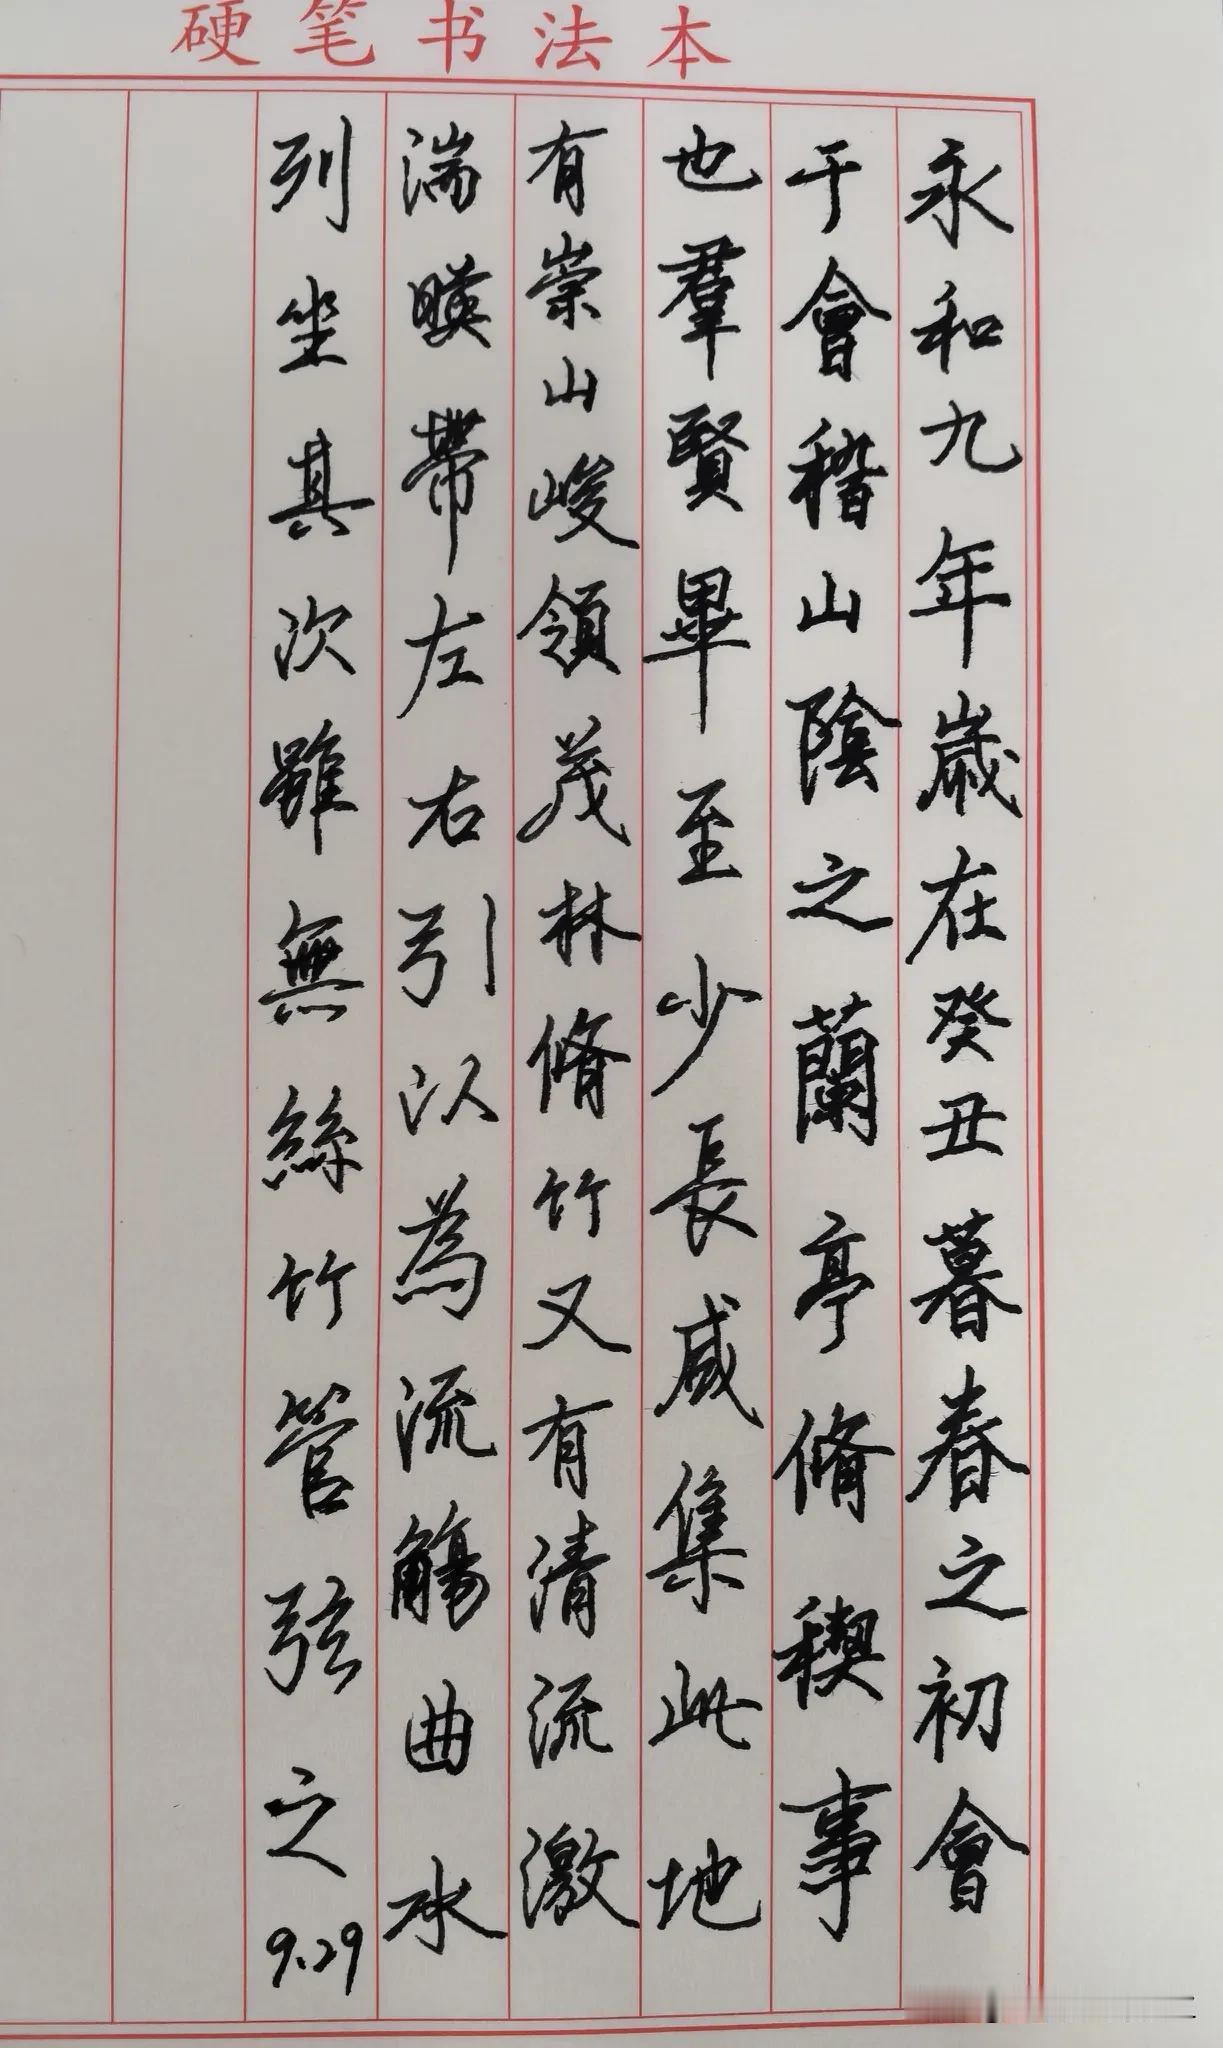 硬笔书法本
永和九年歲在癸丑暮春之初會
于會稽山陰之蘭亭脩稧事
也羣賢畢至少長咸集此地
有崇山峻領茂林脩竹又有清流激
湍暎帶左右引以為流觴曲水
列坐其次雖無絲竹管弦之
9.29